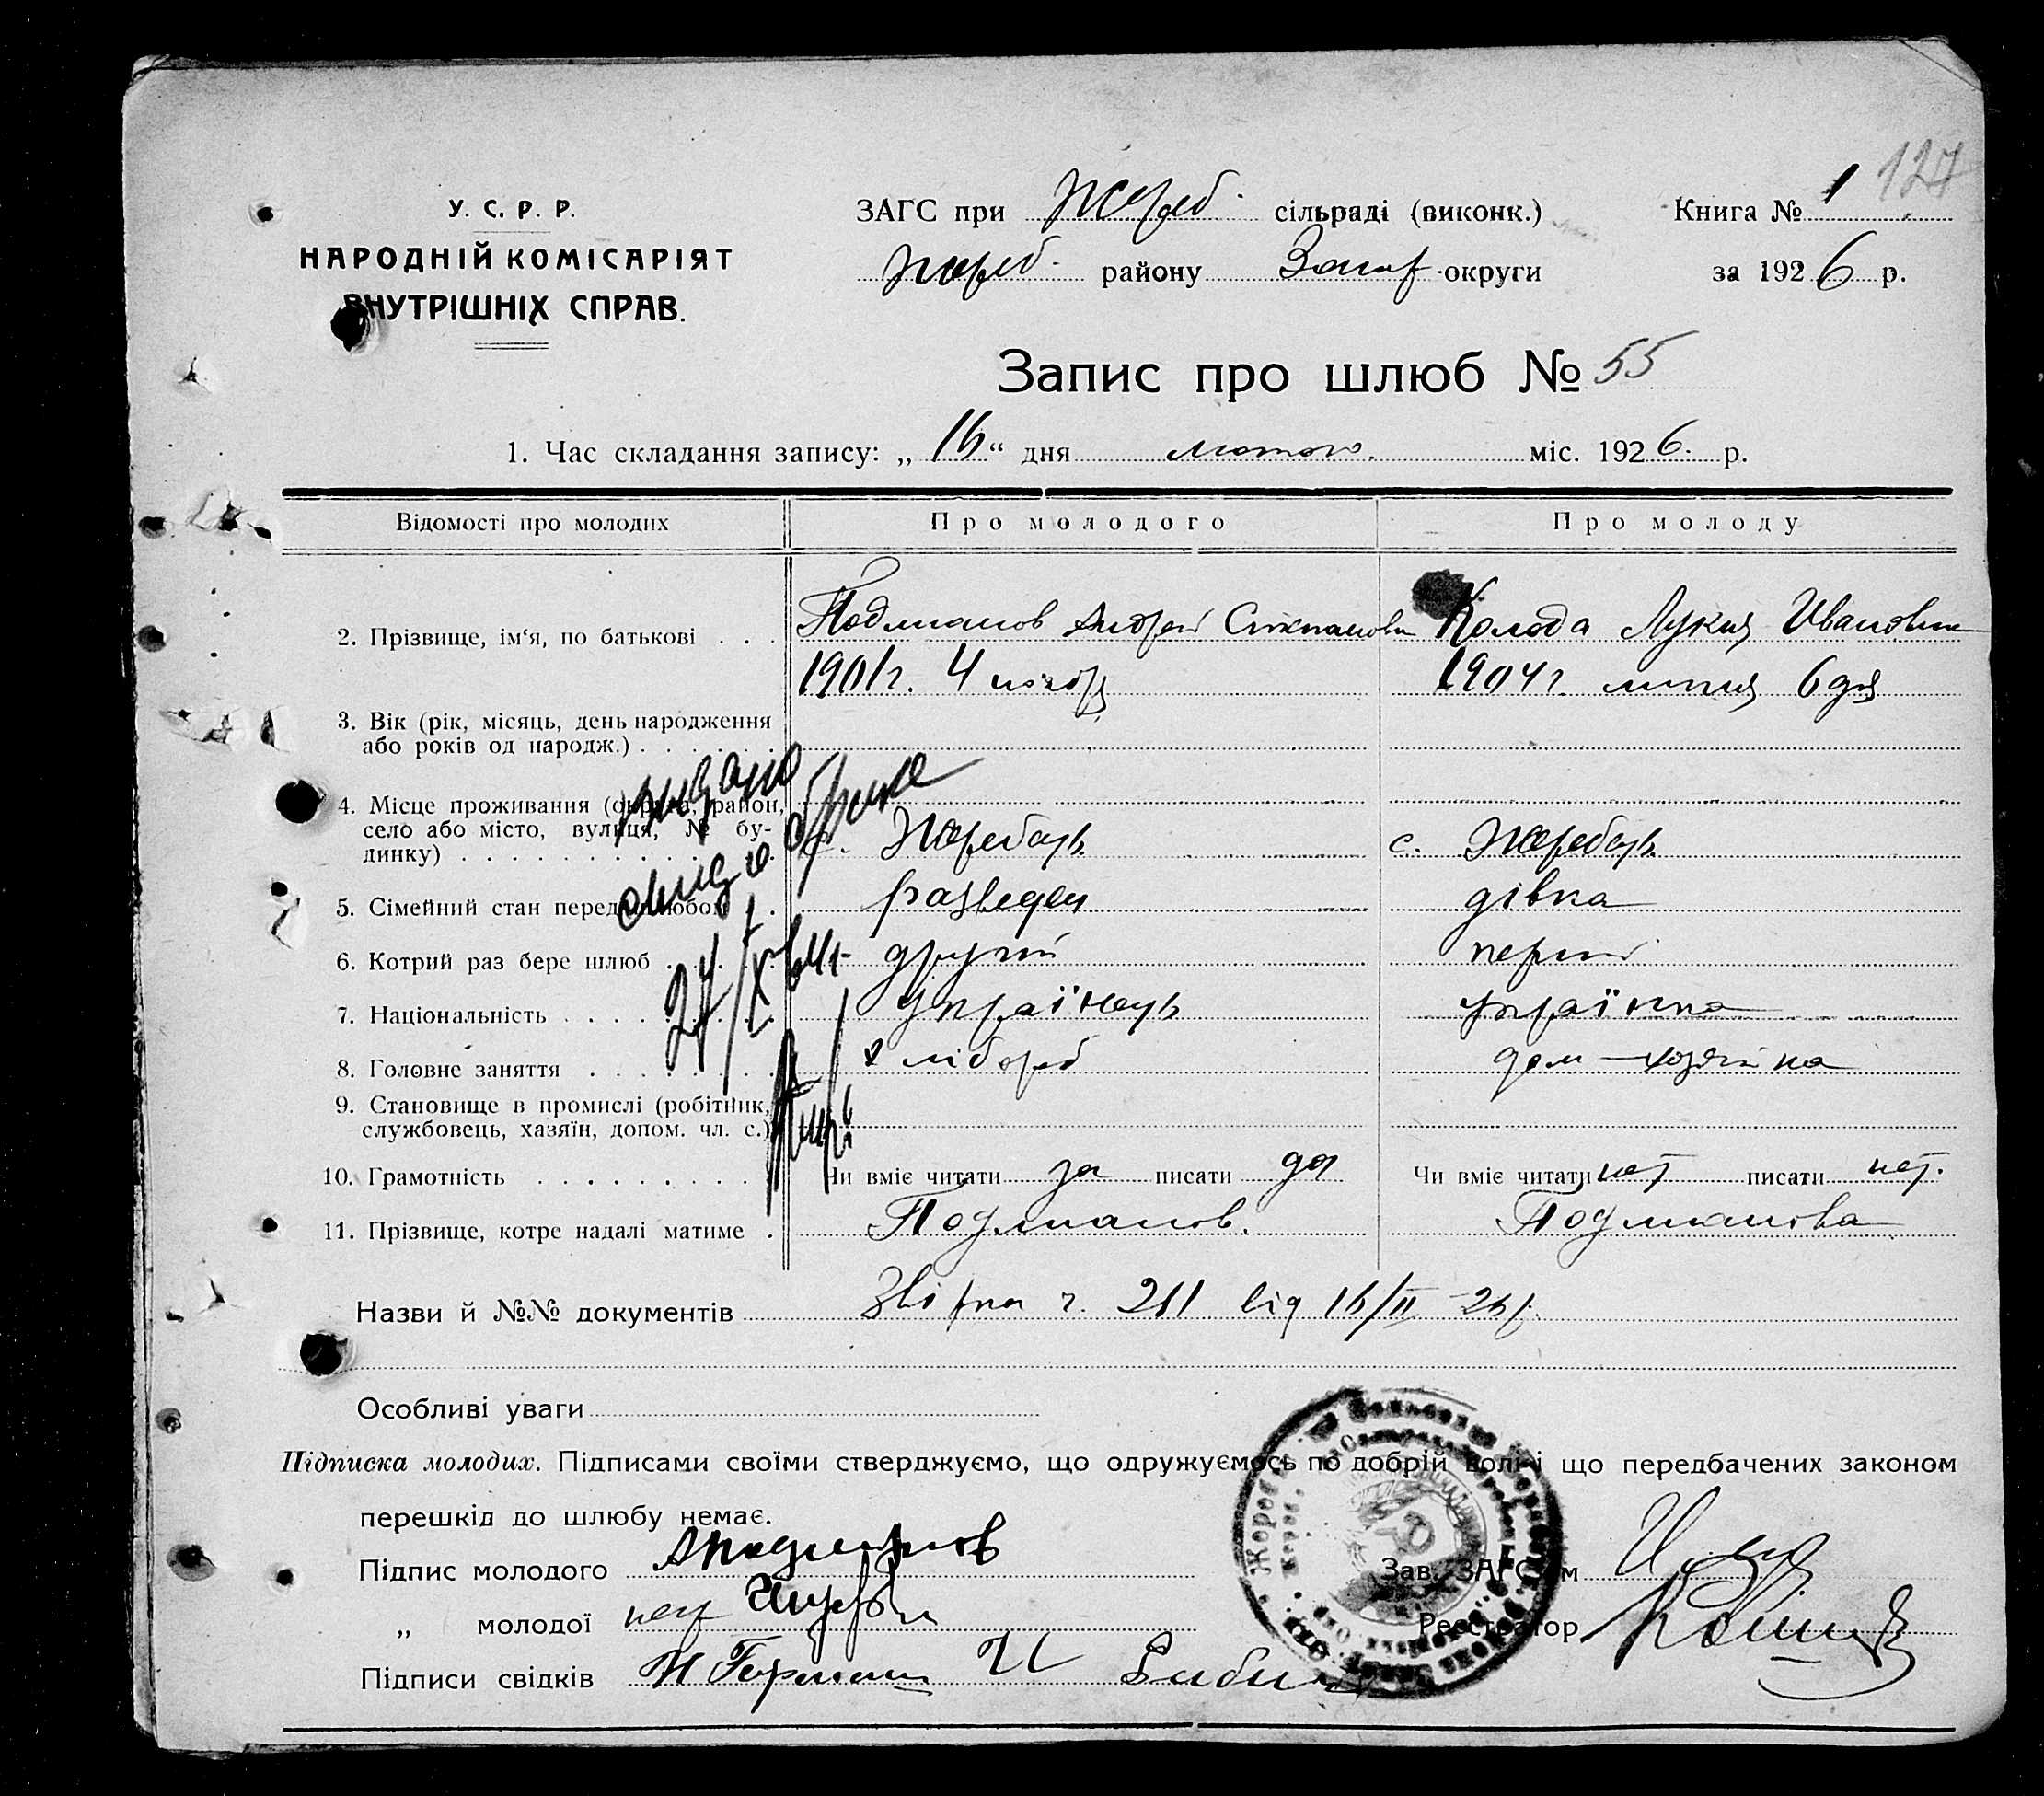 127
У. С. Р. Р.
НАРОДНІЙ КОМІСАРІЯТ
ВНУТРІШНІХ СПРАВ.
ЗАГС при Жереб. сільраді (виконк.)
Жереб. району Запор округи
Книга № 1
за 1926 р.
Запис про шлюб № 55
1. Час складання запису: „16“ дня лютого. міс. 1926. р.
Відомості про молодих Про молодого Про молоду
2. Прізвище, ім‘я, по батькові . . . Подлианов Андрей Степанович Колода Лукия Ивановна
1901 г. 4 1904 г. липня 6 дня
3. Вік (рік, місяць, день народження
або років од народж.) . . . . . .
4. Місце проживання (округа, район,
село або місто, вулиця, № бу-
динку) . . . . . . . . . с. Жеребець с. Жеребець
5. Сімейний стан перед шлюбом . . разведен дівка
6. Котрий раз бере шлюб . . . . другий перший
7. Національність . . . . . . . українець українка
8. Головне заняття . . . . . . . хлібороб дом-хозяйка
9. Становище в промислі (робітник,
службовець, хазяїн, допом. чл. с.)
10. Грамотність . . . . . . . . . Чи вміє читати да писати да Чи вміє читати нет писати нет.
11. Прізвище, котре надалі матиме . Подлианов. Подлианова
видано
27/X
Назви й №№ документів Звірка ч. 211 від 16/II 26 р.
Особливі уваги
Підписка молодих. Підписами своїми стверджуємо, що одружуємось по добрій волі і що передбачених законом
перешкід до шлюбу немає.
Підпис молодого АПодлианов
Зав. ЗАГС'ом
„ молодої
Реєстратор
Підписи свідків